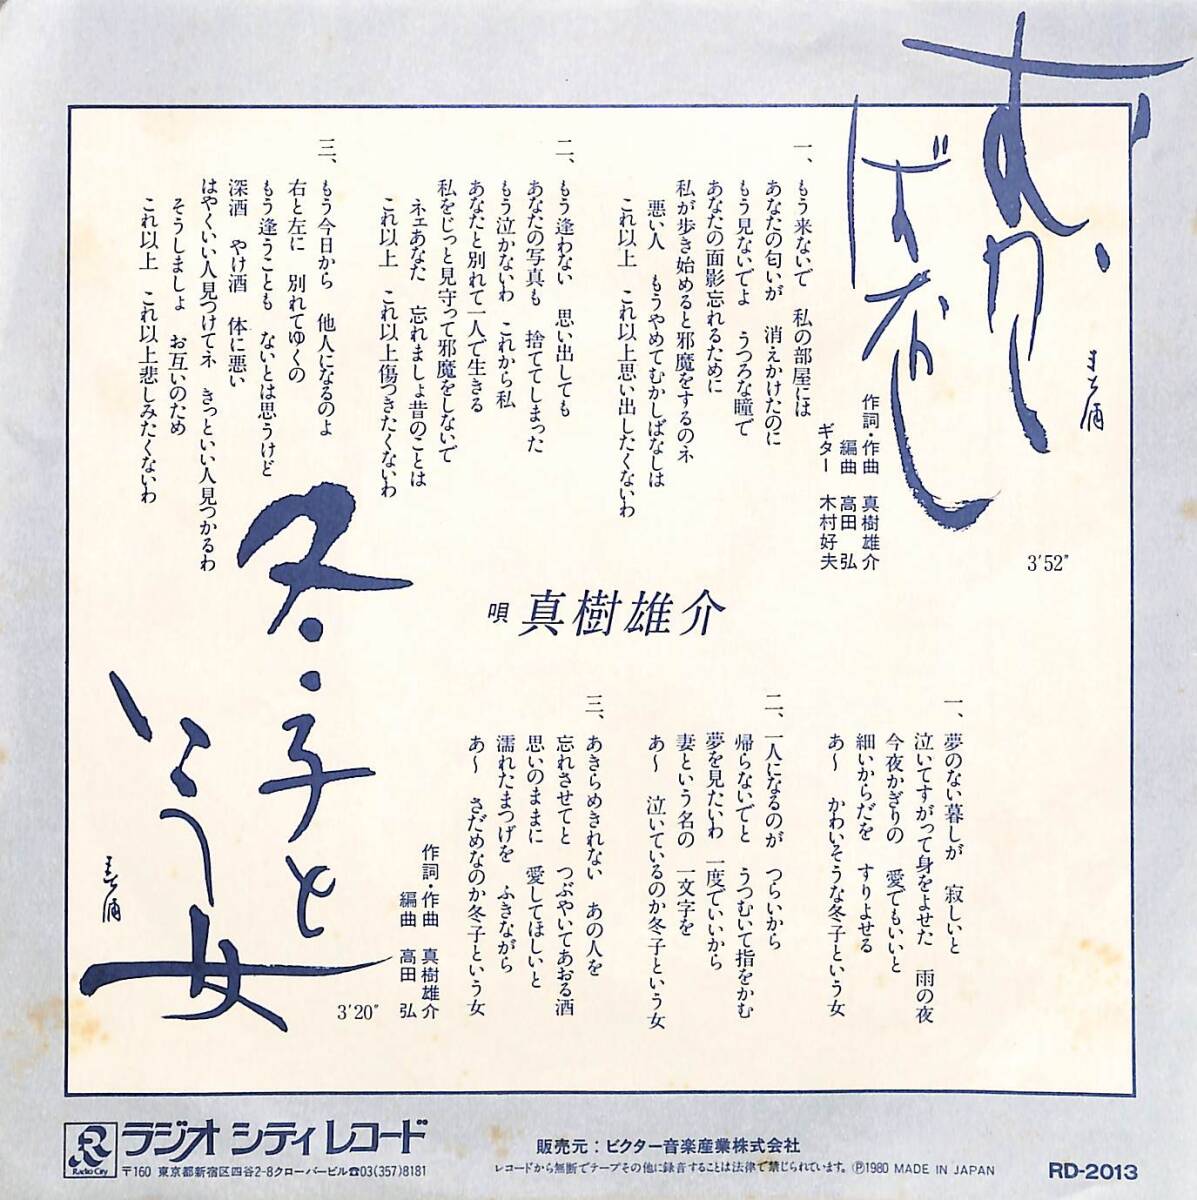 むかしばなし
3'52"
作詞・作曲 真樹雄介
編曲 高田 弘
ギター 木村好夫
一、もう来ないで 私の部屋には
あなたの匂いが 消えかけたのに
もう見ないでよ うつろな瞳で
あなたの面影忘れるために
私が歩き始めると邪魔をするのネ
悪い人 もうやめてむかしばなしは
これ以上 これ以上思い出したくないわ
二、もう逢わない 思い出しても
あなたの写真も 捨ててしまった
もう泣かないわ これから私
あなたと別れて一人で生きる
私をじっと見守って邪魔をしないで
ネェあなた 忘れましょ昔のことは
これ以上 これ以上傷つきたくないわ
三、もう今日から 他人になるのよ
右と左に 別れてゆくの
もう逢うことも ないとは思うけど
深酒 やけ酒 体に悪い
はやくいい人見つけてネ きっといい人見つかるわ
そうしましょ お互いのため
これ以上 これ以上悲しみたくないわ
唄 真樹雄介
冬子という女
3'20"
作詞・作曲 真樹雄介
編曲 高田 弘
一、夢のない暮しが 寂しいと
泣いてすがって身をよせた 雨の夜
今夜かぎりの 愛でもいいと
細いからだを すりよせる
あ〜 かわいそうな冬子という女
二、一人になるのが つらいから
帰らないでと うつむいて指をかむ
夢を見たいわ 一度でいいから
妻という名の 一文字を
あ〜 泣いているのか冬子という女
三、あきらめきれない あの人を
忘れさせてと つぶやいてあおる酒
思いのままに 愛してほしいと
濡れたまつげを ふきながら
あ〜 さだめなのか冬子という女
Radio City
ラジオ シティ レコード
〒160 東京都新宿区四谷2-8クローバービル☎03(357)8181
販売元：ビクター音楽産業株式会社
レコードから無断でテープその他に録音することは法律で禁じられています。Ⓟ1980 MADE IN JAPAN
RD-2013